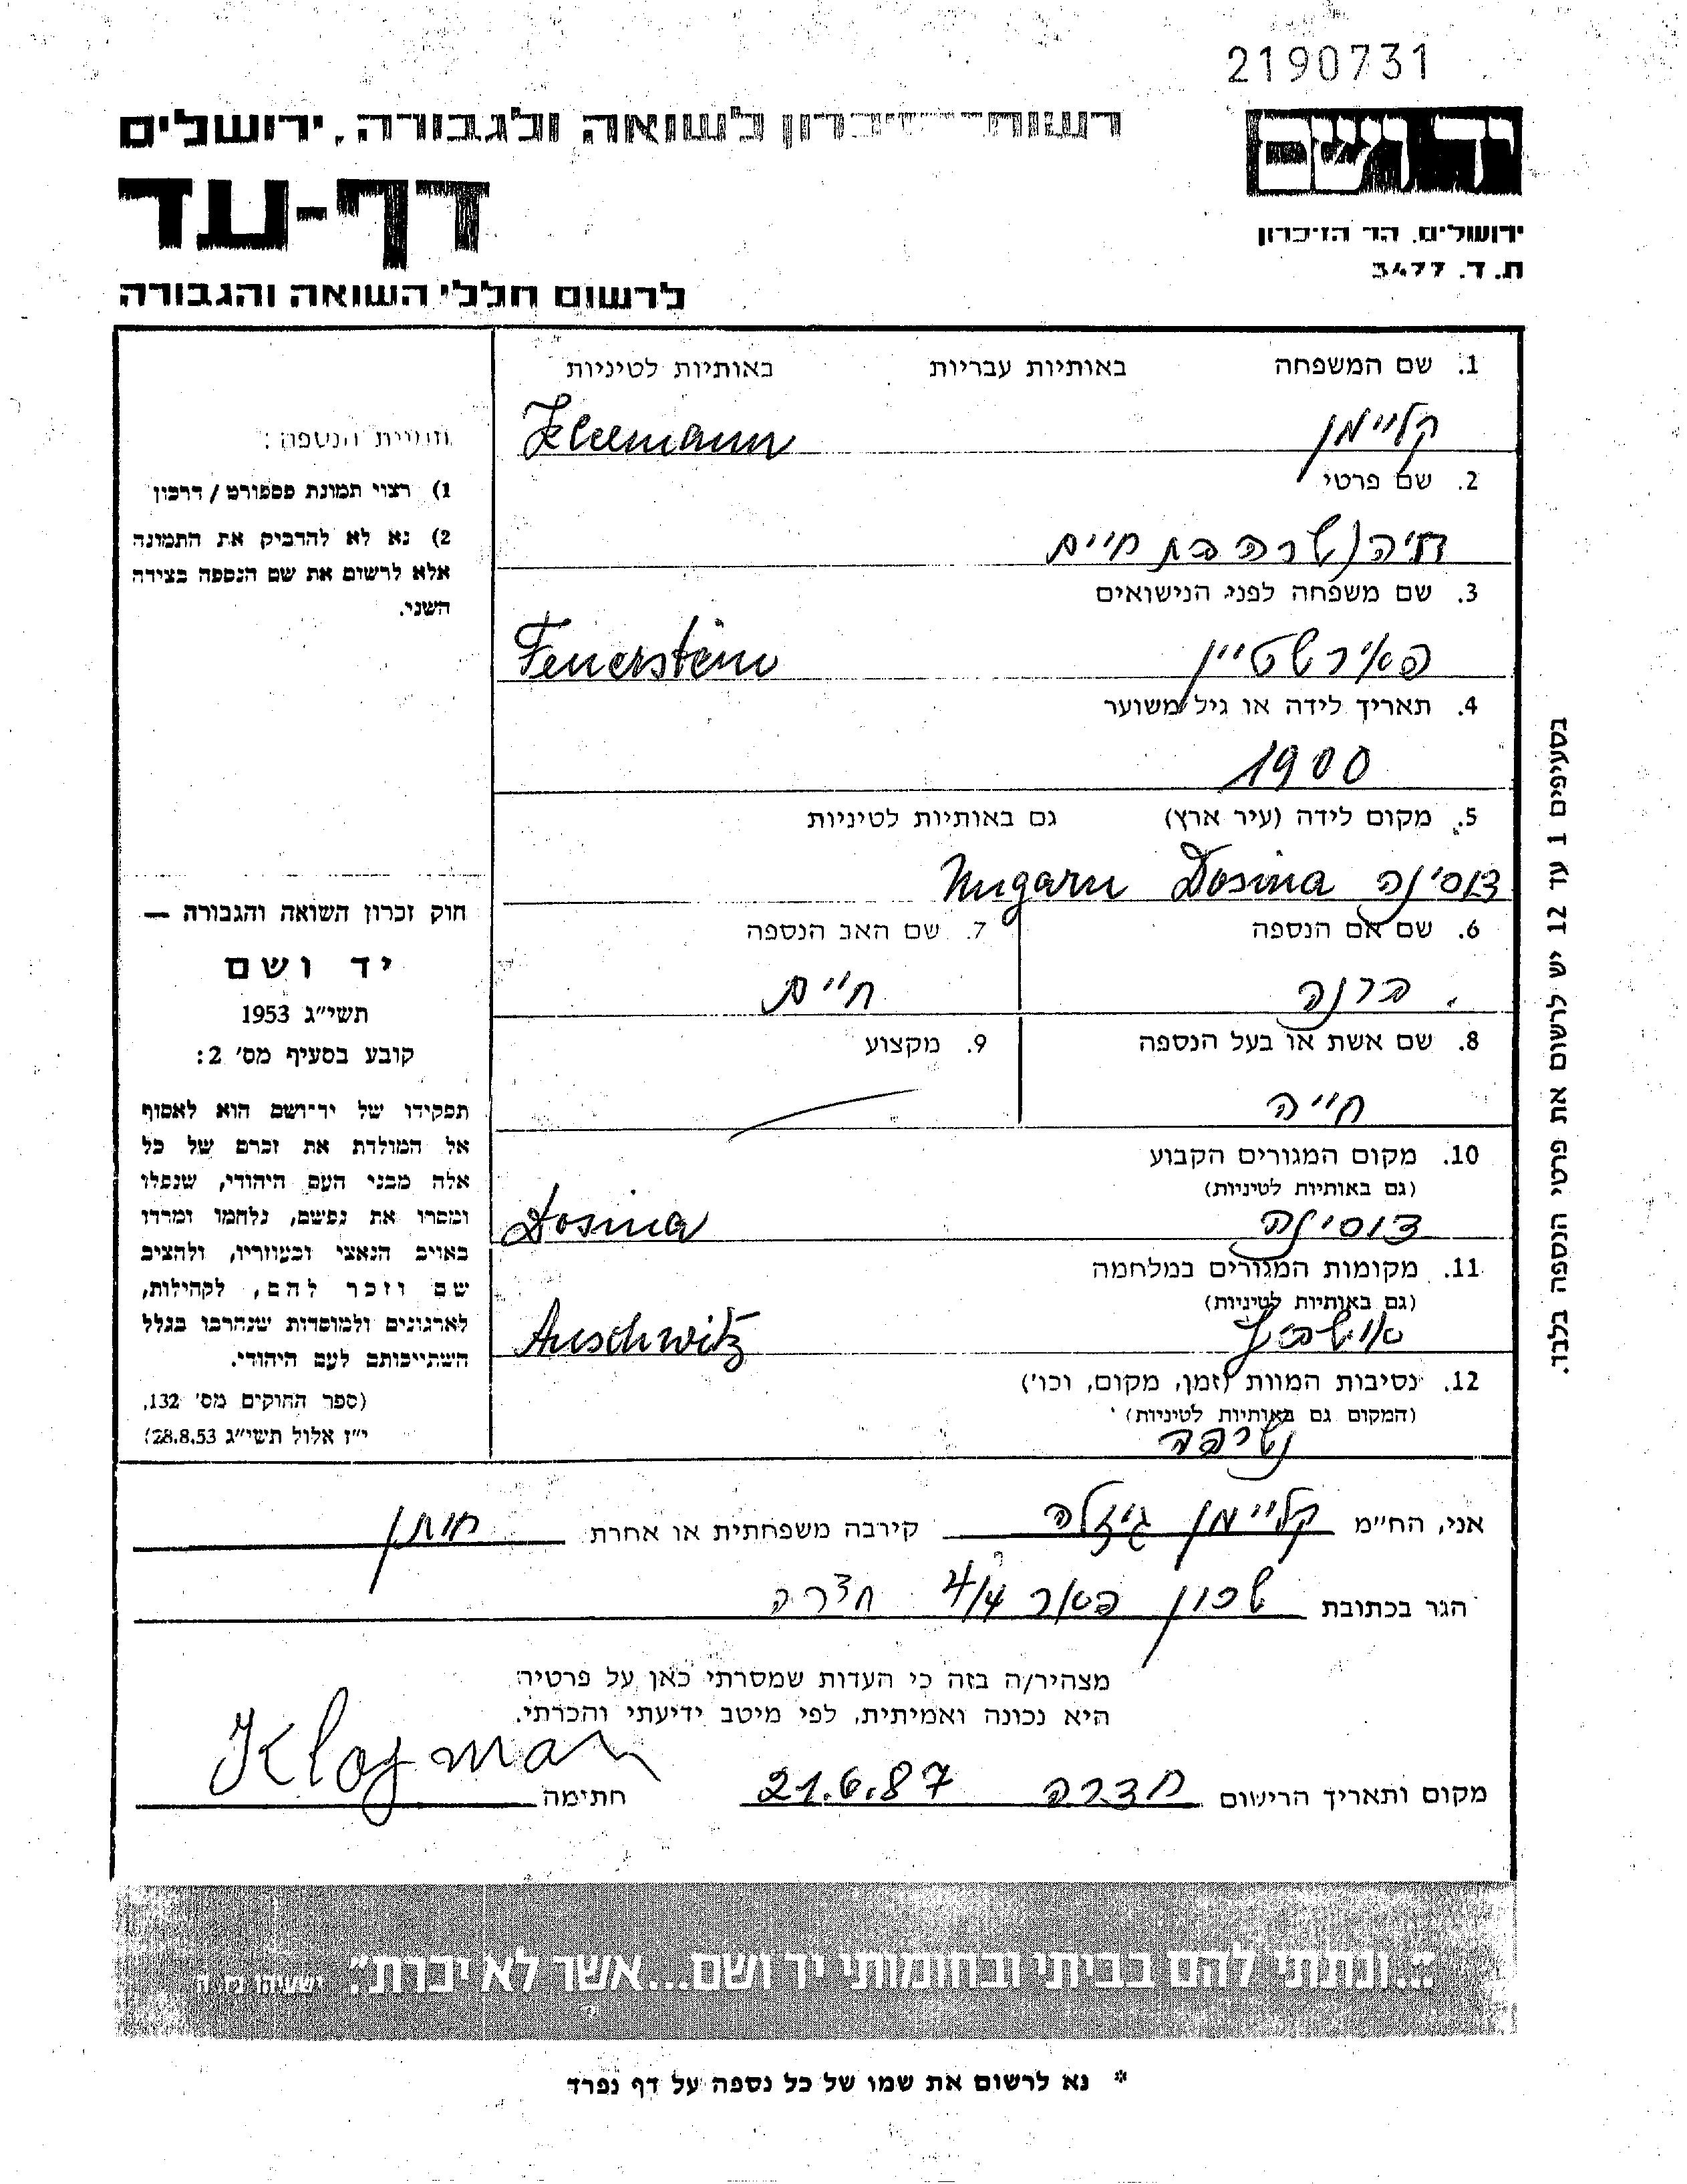 2190731
רשות הזיכרון לשואה ולגבורה, ירושלים
יד ושם
דף-עד
ירושלים, הר הזיכרון
ת. ד. 3477
לרשום חללי השואה והגבורה
1. שם המשפחה באותיות עבריות באותיות לטיניות
קליימן
2. שם פרטי
חיה שרה בת חיים
3. שם משפחה לפני הנישואים
פאירשטיין Feuerstein
4. תאריך לידה או גיל משוער
1900
5. מקום לידה (עיר ארץ) גם באותיות לטיניות
דוסינה Dosina
6. שם אם הנספה 7. שם האב הנספה
חיים
8. שם אשת או בעל הנספה 9. מקצוע
חייה
10. מקום המגורים הקבוע
(גם באותיות לטיניות)
דוסינה Dosina
11. מקומות המגורים במלחמה
(גם באותיות לטיניות)
Auschwitz
12. נסיבות המוות (זמן, מקום, וכו')
(המקום גם באותיות לטיניות)
נשרפה
תמונת הנספה:
1) רצוי תמונת פספורט / דרכון
2) נא לא להדביק את התמונה
אלא לרשום את שם הנספה בצידה
השני.
חוק זכרון השואה והגבורה —
יד ושם
תשי״ג 1953
קובע בסעיף מס' 2:
תפקידו של יד־ושם הוא לאסוף
אל המולדת את זכרם של כל
אלה מבני העם היהודי, שנפלו
ומסרו את נפשם, נלחמו ומרדו
באויב הנאצי ובעוזריו, ולהציב
שם וזכר להם, לקהילות,
לארגונים ולמוסדות שנחרבו בגלל
השתייכותם לעם היהודי.
(ספר החוקים מס' 132,
י״ז אלול תשי״ג 28.8.53)
בסעיפים 1 עד 12 יש לרשום את פרטי הנספה בלבד.
אני, הח״מ קליימן גיזלה קירבה משפחתית או אחרת חותן
הגר בכתובת שכון פאר 4/4 חדרה
מצהיר/ה בזה כי העדות שמסרתי כאן על פרטיה
היא נכונה ואמיתית, לפי מיטב ידיעתי והכרתי.
מקום ותאריך הרישום חדרה 21.6.87 חתימה Klajman
״...ונתתי להם בביתי ובחומותי יד ושם...אשר לא יכרת״. ישעיהו נו, ה
* נא לרשום את שמו של כל נספה על דף נפרד